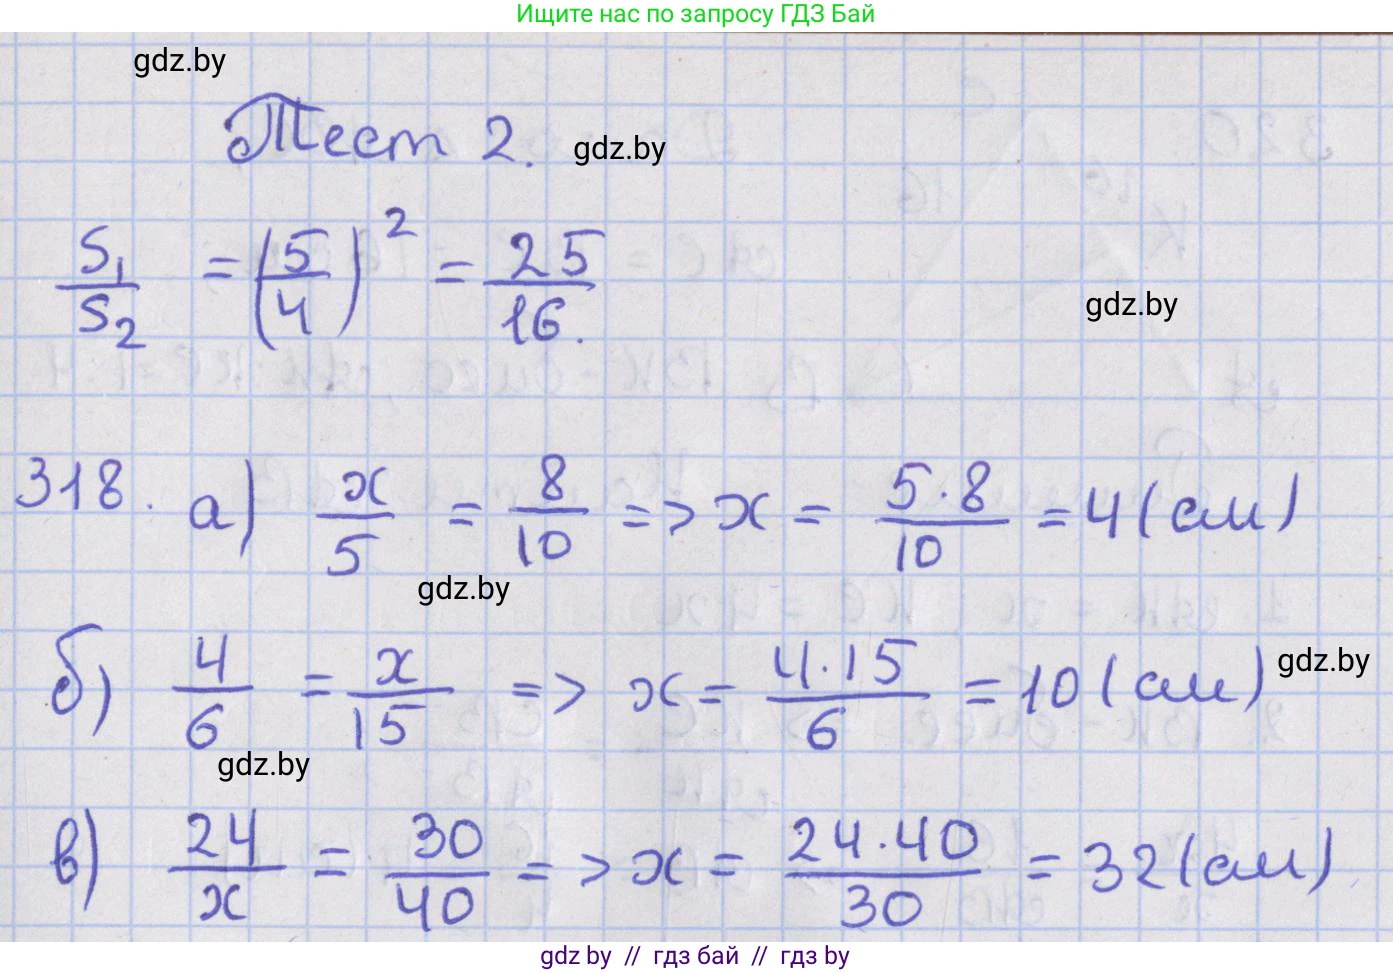 Ищите нас по запросу ГДЗ Бай
gdz.by
Тест 2. gdz.by
S₁/S₂ = (5/4)² = 25/16.
gdz.by
318. а) x/5 = 8/10 => x = 5·8/10 = 4 (см)
gdz.by
б) 4/6 = x/15 => x = 4·15/6 = 10 (см) gdz.by
gdz.by
в) 24/x = 30/40 => x = 24·40/30 = 32 (см)
gdz.by // гдз бай // гдз by